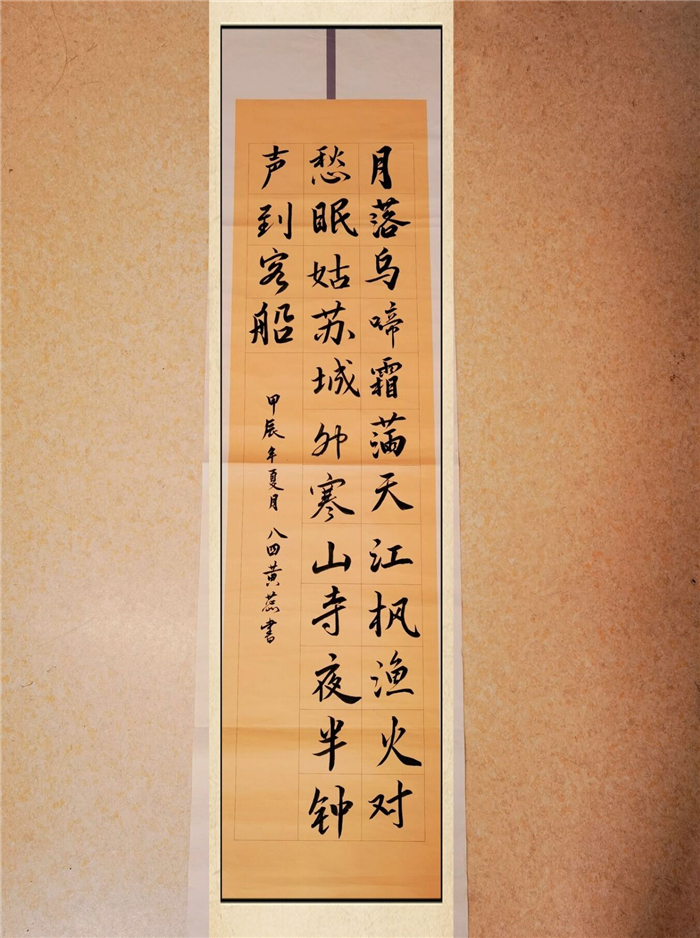 月落乌啼霜满天江枫渔火对
愁眠姑苏城外寒山寺夜半钟
声到客船
甲辰年夏月 八四黄蕊书